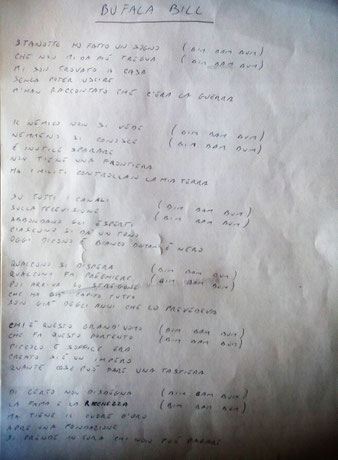 BUFALA BILL
STANOTTE HO FATTO UN SOGNO (BIM BAM BUM)
CHE NON MI DA PIÙ TREGUA (BIM BAM BUM)
MI SON TROVATO IN CASA
SENZA POTER USCIRE
M'HAN RACCONTATO CHE C'ERA LA GUERRA
IL NEMICO NON SI VEDE (BIM BAM BUM)
NEMMENO SI CONOSCE (BIM BAM BUM)
È INUTILE SPARARE
NON TIENE UNA FRONTIERA
MA I MILITI CONTROLLAN LA MIA TERRA
SU TUTTI I CANALI (BIM BAM BUM)
SULLA TELEVISIONE (BIM BAM BUM)
ABBONDANO GLI ESPERTI
CIASCUNO SI DÀ UN TONO
OGGI DICONO È BIANCO DOMANI È NERO
QUALCUNO SI DISPERA (BIM BAM BUM)
QUALCUNO FA PREGHIERE (BIM BAM BUM)
POI ARRIVA LO STREGONE
CHE HA GIÀ CAPITO TUTTO
SON GIÀ DEGLI ANNI CHE LO PREVEDEVO
CHI È QUESTO GRAND'UOMO (BIM BAM BUM)
CHE FA QUESTO PORTENTO (BIM BAM BUM)
PICCOLO E SOFFICE ERA
CREATO HA UN IMPERO
QUANTE COSE PUÒ FARE UNA TASTIERA
DI CERTO NON DISDEGNA (BIM BAM BUM)
LA FAMA E LA RICCHEZZA (BIM BAM BUM)
MA TIENE IL CUORE D'ORO
APRE UNA FONDAZIONE
SI PRENDE IN CURA CHI NON PUÒ PAGARE